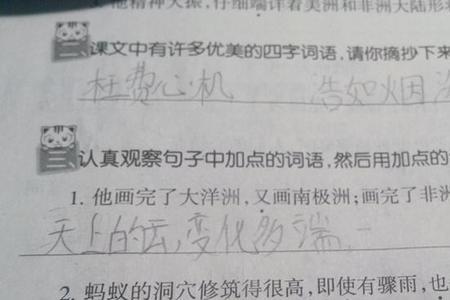 他精神大振,仔细端详着美洲和非洲大陆形
二 课文中有许多优美的四字词语,请你摘抄下来
枉费心机 浩如烟
三 认真观察句子中加点的词语,然后用加点的
1. 他画完了大洋洲,又画南极洲;画完了非洲
天上的云,变化多端。
2. 蚂蚁的洞穴修筑得很高,即使有骤雨,也